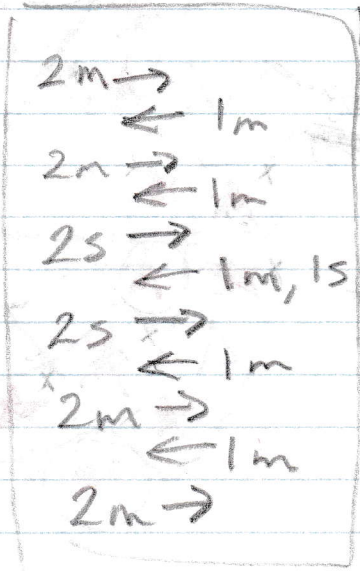 2m →
← 1m
2m →
← 1m
2s →
← 1m, 1s
2s →
← 1m
2m →
← 1m
2m →